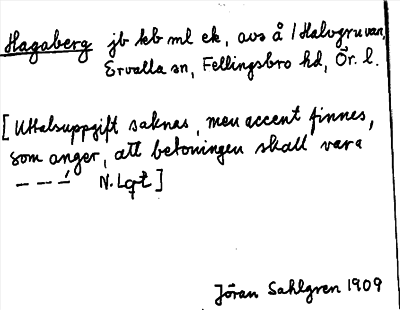 Hagaberg jb kb ml ek, avs å /Halvgruvan,
Ervalla sn, Fellingsbro hd, Ör. l.
[Uttalsuppgift saknas, men accent finnes,
som anger, att betoningen skall vara
– – –́ N. Lqt]
Jöran Sahlgren 1909